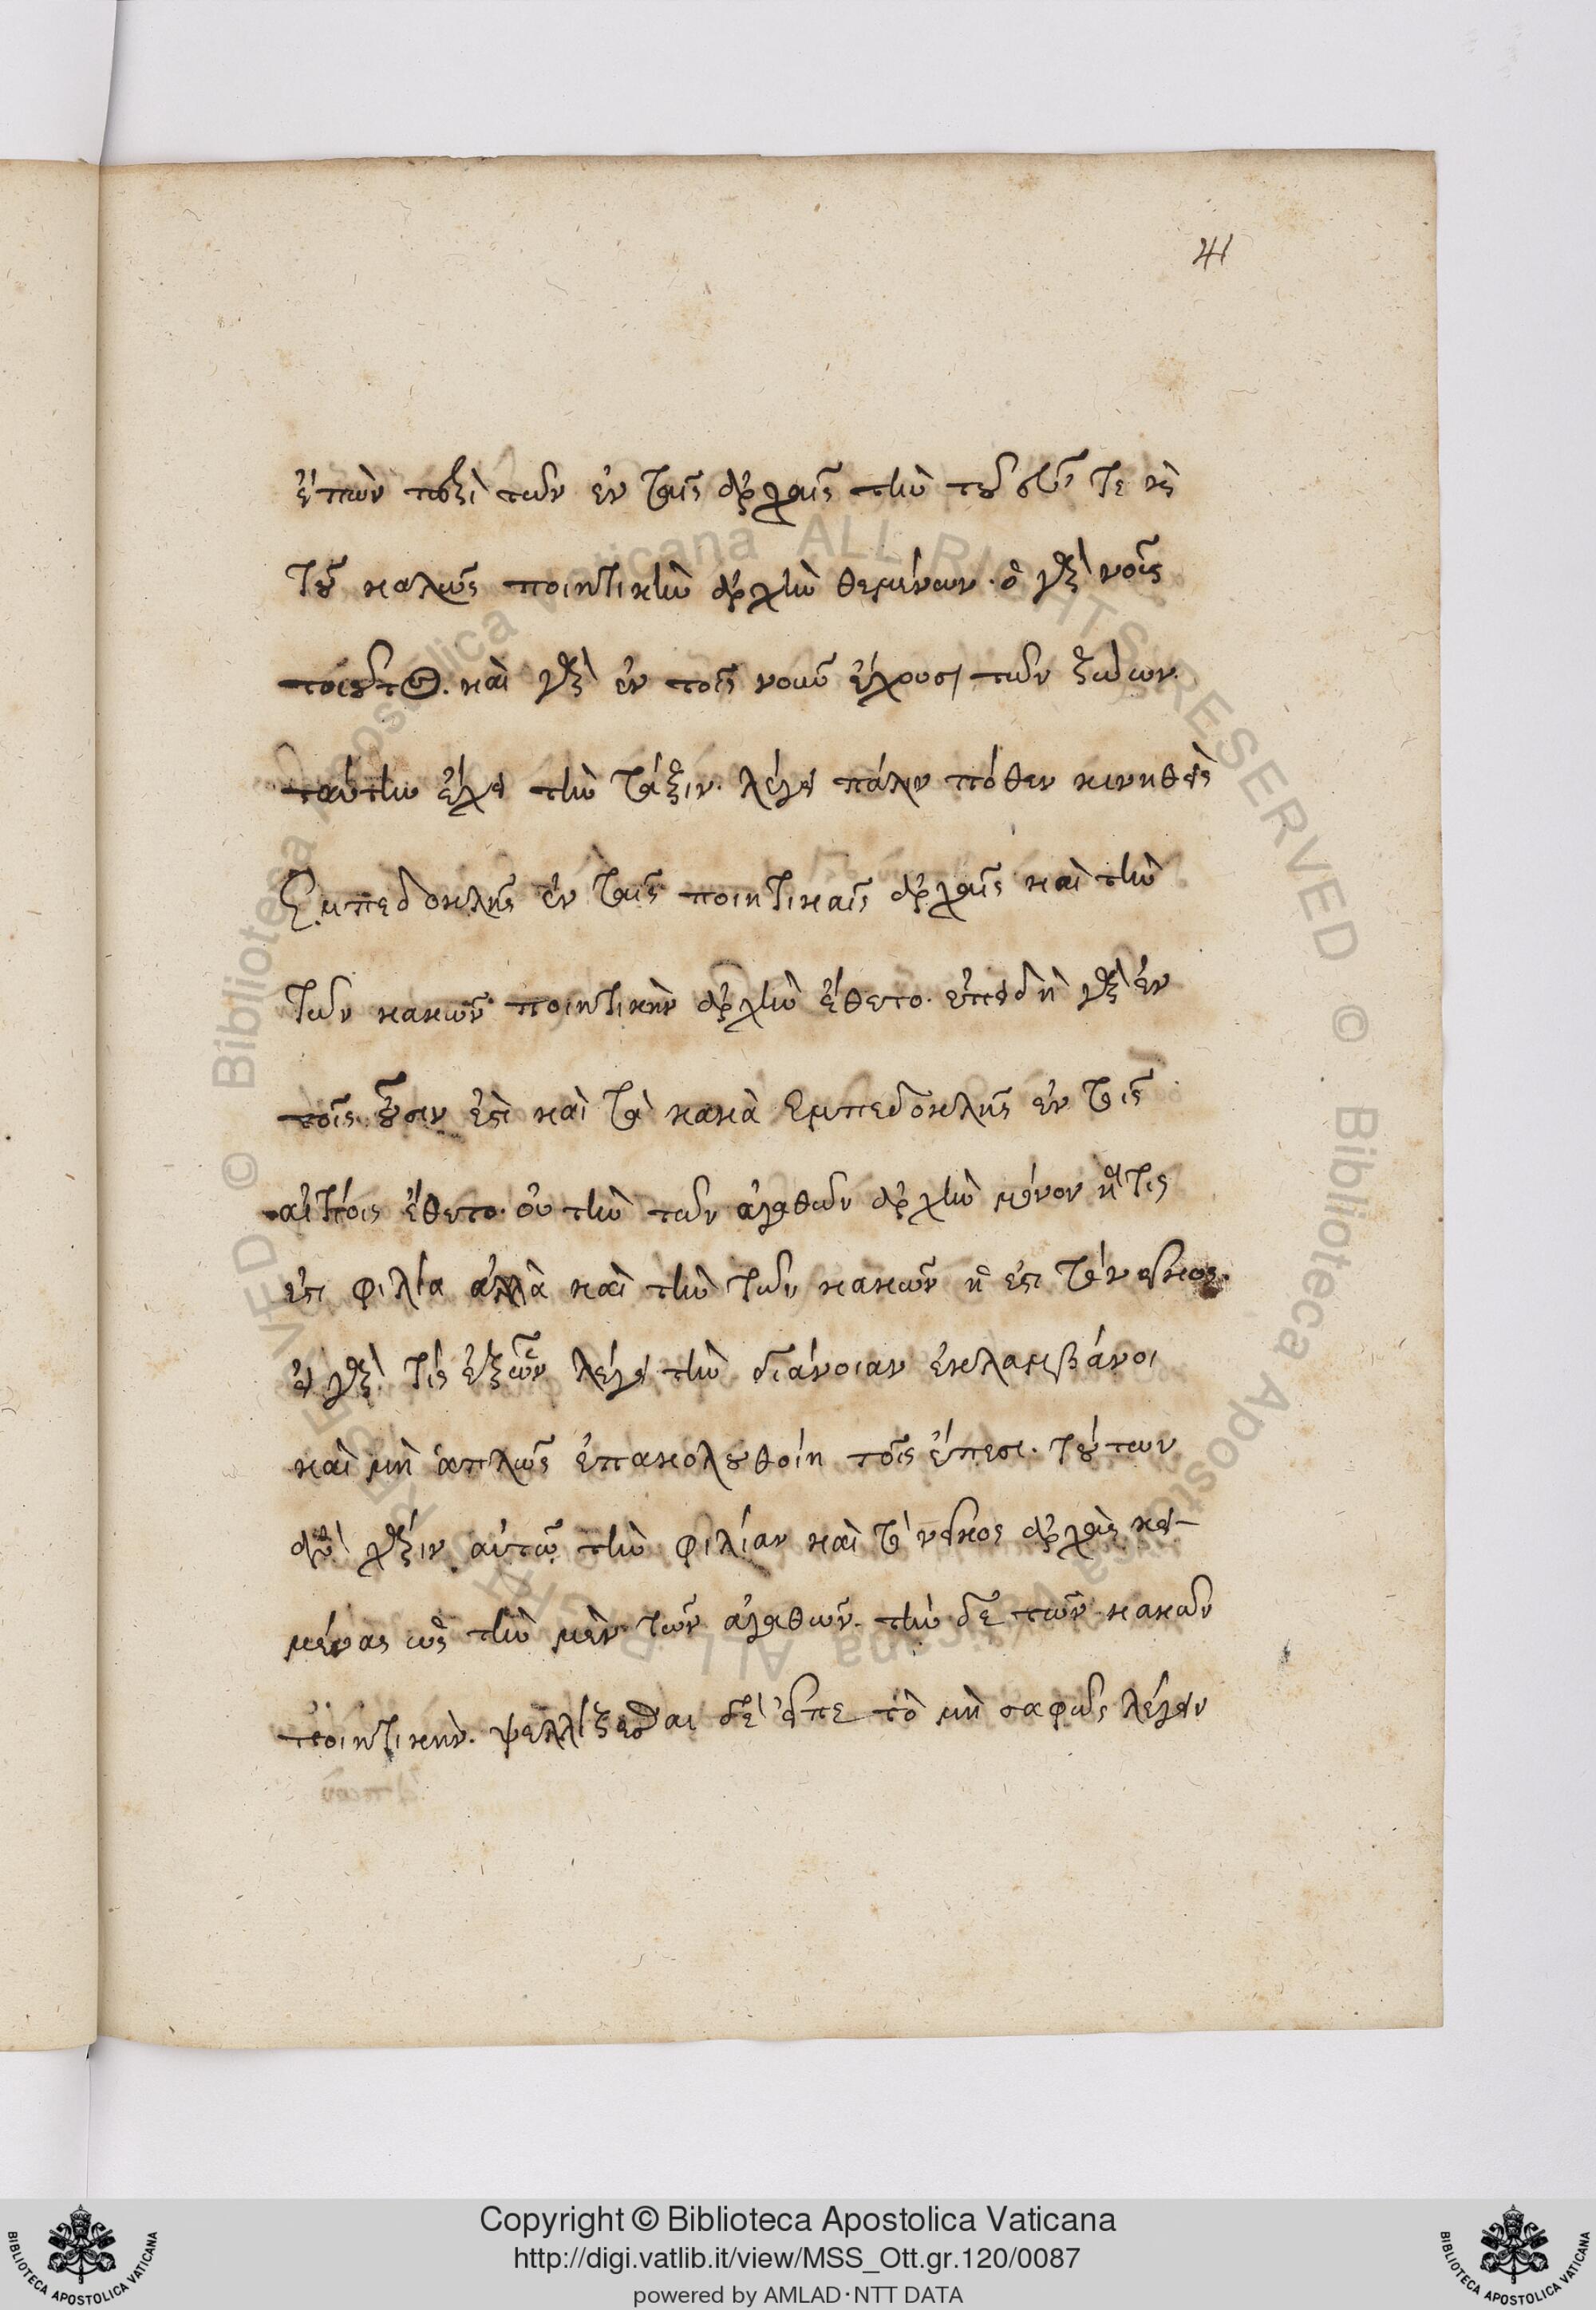 41
εἰπὼν περὶ τῶν ἐν ταῖς ἀρχαῖς τὴν τοῦ εὖ τε καὶ
τοῦ καλῶς ποιητικὴν ἀρχὴν θεμένων. ὁ γὰρ νοῦς
τοιοῦτος. καὶ γὰρ ἐν τοῖς νοῦν ἔχουσι τῶν ζώων
ταύτην ἔχει τὴν τάξιν. λέγει πάλιν πόθεν κινηθεὶς
Ἐμπεδοκλῆς ἐν ταῖς ποιητικαῖς ἀρχαῖς καὶ τὴν
τῶν κακῶν ποιητικὴν ἀρχὴν ἔθετο. ἐπειδὴ γὰρ ἐν
τοῖς οὖσιν ἐστὶ καὶ τὰ κακὰ Ἐμπεδοκλῆς ἐν τοῖς
αἰτίοις ἔθετο. οὐ τὴν τῶν ἀγαθῶν ἀρχὴν μόνον ἥτις
ἐστι φιλία ἀλλὰ καὶ τὴν τῶν κακῶν ἥ ἐστι τὸ νεῖκος.
εἰ γάρ τις ἐξ ὧν λέγει τὴν διάνοιαν ἐκλαμβάνοι
καὶ μὴ ἁπλῶς ἐπακολουθοίη τοῖς ἔπεσι. τούτων
ἂν χάριν αὐτῷ τὴν φιλίαν καὶ τὸ νεῖκος ἀρχὰς κει-
μένας ὡς τὴν μὲν τῶν ἀγαθῶν. τὴν δὲ τῶν κακῶν
ποιητικήν. ψελλίζεσθαι δὲ εἶπε τὸ μὴ σαφῶς λέγειν
Copyright © Biblioteca Apostolica Vaticana
http://digi.vatlib.it/view/MSS_Ott.gr.120/0087
powered by AMLAD·NTT DATA
BIBLIOTECA APOSTOLICA VATICANA
BIBLIOTECA APOSTOLICA VATICANA
© Biblioteca Apostolica Vaticana ALL RIGHTS RESERVED © Biblioteca Apostolica Vaticana ALL RIGHTS RESERVED